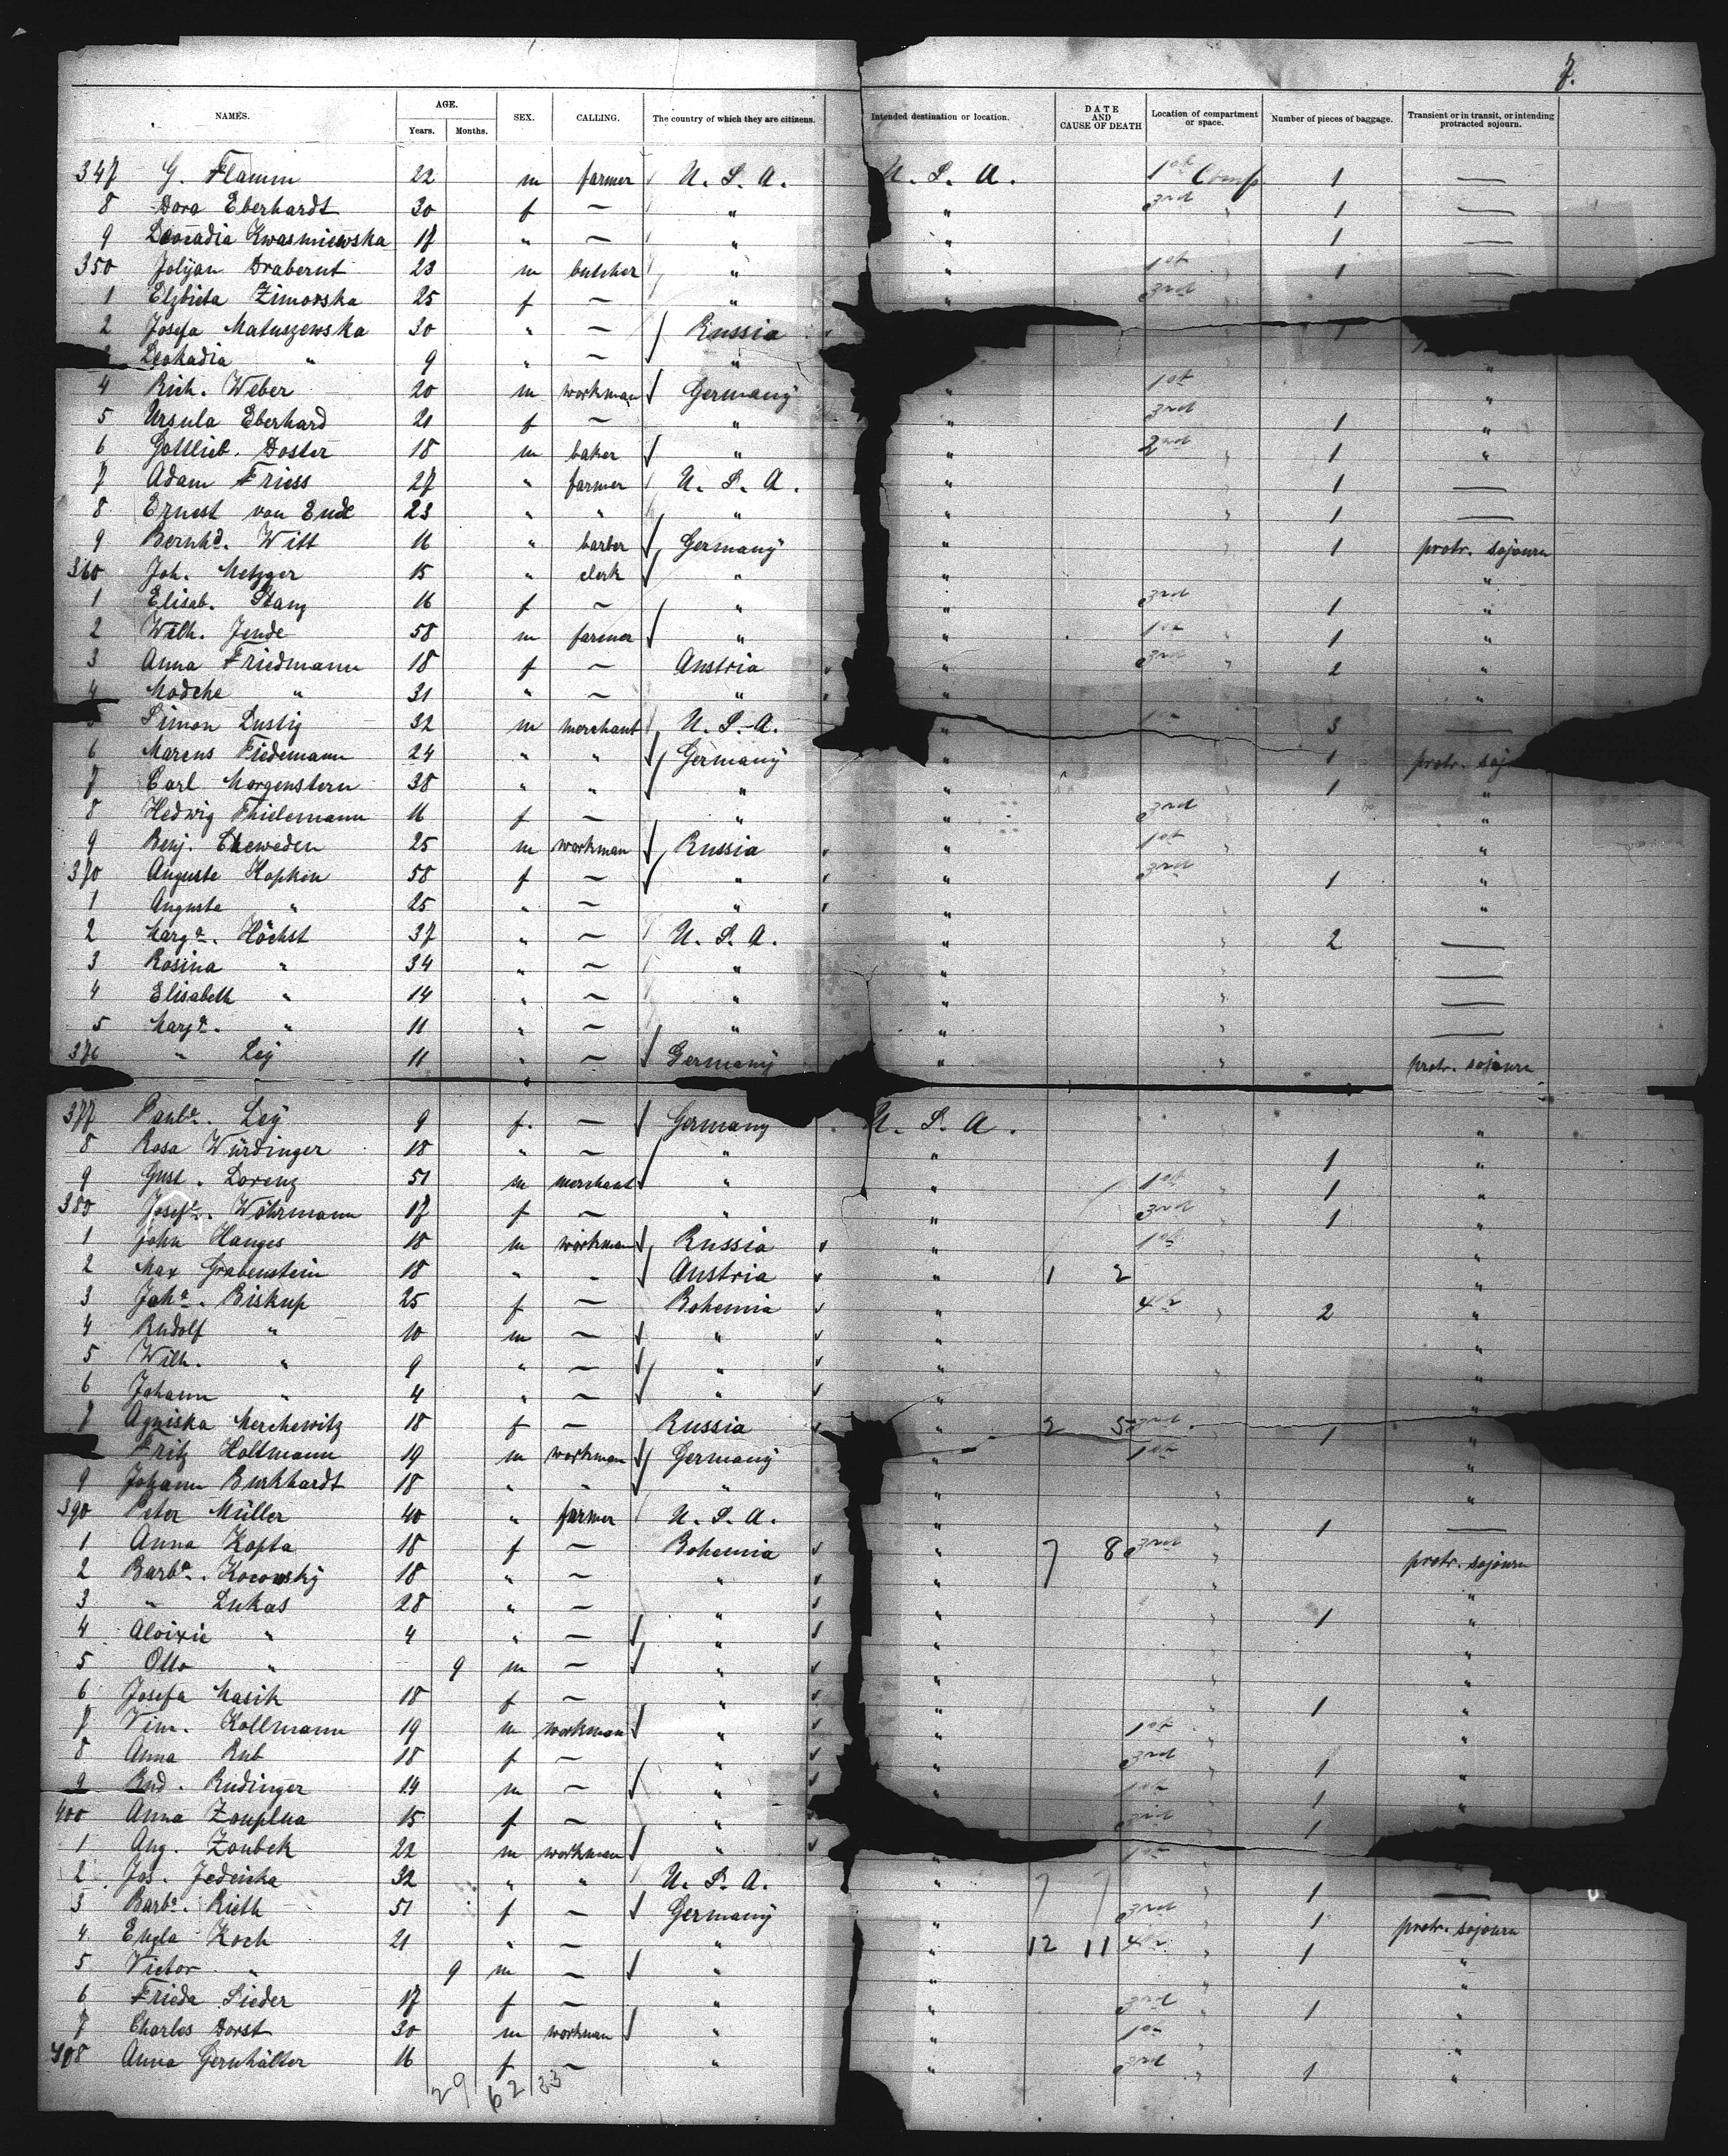 7.
NAMES. AGE. Years. Months. SEX. CALLING. The country of which they are citizens. Intended destination or location. DATE AND CAUSE OF DEATH Location of compartment or space. Number of pieces of baggage. Transient or in transit, or intending protracted sojourn.
347 G. Flamm 22 m farmer U. S. A. U. S. A. 1st Comp. 1 —
8 Dora Eberhardt 30 f — " " 3rd " 1 —
9 Leocadia Kwasniewska 17 " — " " 1 —
350 Jolyan Drabernt 23 m butcher " " 1st " 1 —
1 Elzbieta Zimorska 25 f — " " 3rd
2 Josefa Matuszewska 30 " — Russia 1
Leokadia " 9 " — " "
4 Rich. Weber 20 m workman Germany " 1st "
5 Ursula Eberhard 21 f — " " 3rd 1 "
6 Gottlieb. Doster 18 m baker " " 2nd 1 "
7 Adam Friess 27 " farmer U. S. A. " 1 —
8 Ernest von Ende 23 " " " " " 1 —
9 Bernhd. Witt 16 " barber Germany " 1 protr. sojourn
360 Joh. Metzger 15 " clerk " " "
1 Elisab. Stang 16 f — " " 3rd 1 "
2 Wilh. Jende 58 m farmer " " 1st " 1 "
3 Anna Friedmann 18 f — Austria " 3rd " 2 "
4 Modche " 31 " — " " " "
5 Simon Lustig 32 m merchant U. S. A. " 1st 3 —
6 Marcus Fiedemann 24 " " Germany " 1 protr. soj
7 Carl Morgenstern 38 " " " " 1 "
8 Hedwig Thielemann 16 f — " " 3rd "
9 Benj. Cheweden 25 m workman Russia " 1st " "
370 Auguste Hopkin 58 f — " " 3rd 1 "
1 Augusta " 25 " — " " " "
2 Marga. Höchst 37 " — U. S. A. " " 2 —
3 Rosina " 34 " — " " " —
4 Elisabeth " 14 " — " " " —
5 Marga. " 11 " — " " " —
376 " Ley 11 " — Germany " " protr. sojourn
377 Barba. Ley 9 f. — Germany U. S. A. "
8 Rosa Würdinger 18 " — " " 1 "
9 Gust. Lorenz 51 m merchant " " 1st " 1 "
380 Josefa. Wöhrmann 17 f — " " 3rd " 1 "
1 John Hanges 18 m workman Russia " 1st " "
2 Max Grabenstein 18 " " Austria " 1 2 "
3 Joha. Biskup 25 f — Bohemia " 4th " 2 "
4 Rudolf " 10 m — " " "
5 Wilh. " 9 " — " " "
6 Johann " 4 " — " " "
7 Agniska Merchewitz 18 f — Russia " 2 5 3rd 1 "
Fritz Holtmann 19 m workman Germany " 1st "
9 Johann Burkhardt 18 " " " " "
390 Peter Müller 40 " farmer U. S. A. " " 1 —
1 Anna Kopta 18 f — Bohemia " 7 8 3rd " protr. sojourn
2 Barba. Kocowsky 18 " — " " "
3 " Lukas 28 " — " " " 1 "
4 Aloixie " 4 " — " " "
5 Otto " 9 m — " " "
6 Josefa Masik 18 f — " " " 1 "
7 Vinc. Kollmann 19 m workman " " 1st "
8 Anna Rub 18 f — " " 3rd " 1 "
9 Rud. Rudinger 14 m — " " 1st " 1 "
400 Anna Zouplna 15 f — " " 3rd 1
1 Aug. Zoubek 22 m workman " " 1st "
2 Jos. Jedericka 32 " " U. S. A. " 7 " 1 —
3 Barba. Rieth 51 f — Germany " 3rd " 1 protr. sojourn
4 Engla Koch 21 " — " " 12 11 4th " 1 "
5 Victor " 9 m — " " " "
6 Frieda Sieder 17 f — " " 3rd " 1 "
7 Charles Dorst 30 m workman " " 1st "
408 Anna Gernhälter 16 f — " " 3rd " 1 "
29 62 33